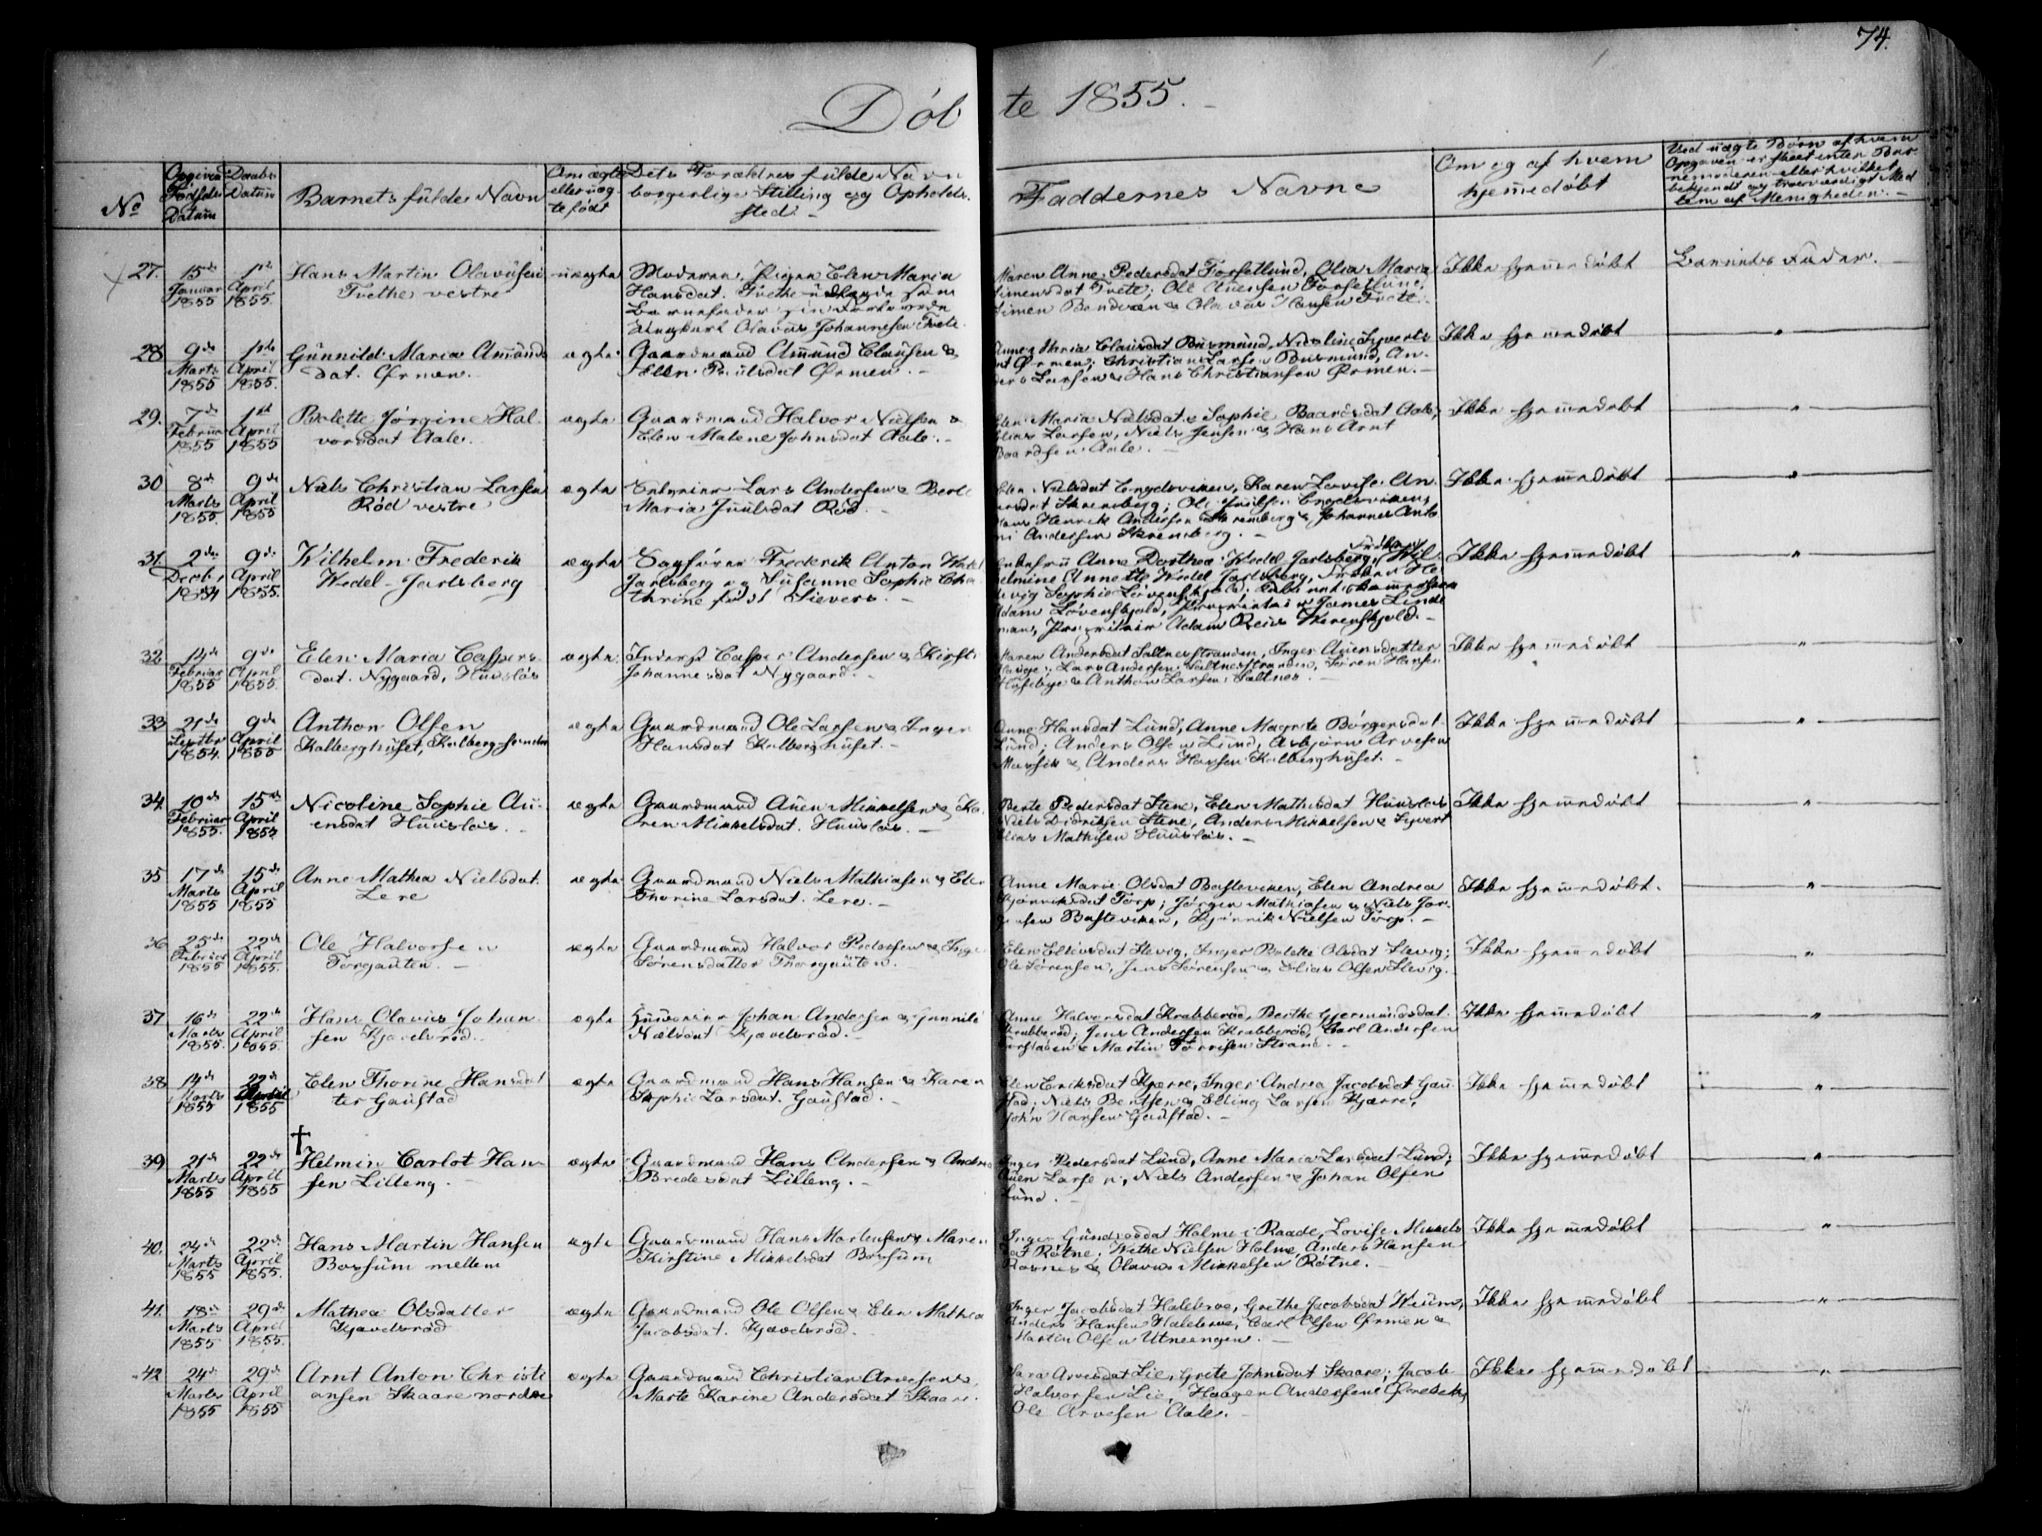 74.
Döbte 1855.
No
Opgivne Fødselsdatum
Daabsdatum
Barnets fulde Navn
Om ægte eller uægte født
Dets Forældres fulde Navn borgerlige Stilling og Opholdssted
Faddernes Navne
Om og af hvem hjemedøbt
Ved uægte Børn af hvem Opgaven er skeet
27. 15de Januar 1855
1ste April 1855.
Hans Martin Olavusen
Tvethe vestre
uægte
Moderen: Pigen Elen Maria
Hansdat. Tvethe udlagde som
Barnefader
Ungkarl Olavus Johannesen Tvete.
Maren Anne Pedersdat Torsetlund, Olia Maria
Simensdat Tvete; Ole Auensen Torsetlund,
Simen Bendixen & Olavus Hansen Tvete.
Ikke hjemmedøbt
Barnets Fader.
28 9de Marts 1855
1ste April 1855.
Gunnild Maria Amunds
dat. Ørmen.
ægte
Gaardmand Amund Clausen &
Elen Poulsdat Ørmen.
Maria Clausdat Busmund, Nicoline Syverts
dat Ørmen; Christian Larsen Busmund, An-
ders Larsen & Hans Christiansen Ørmen.
Ikke hjemmedøbt
29. 7de Februar 1855
1ste April 1855
Bolette Jørgine Hal-
vorsdat Aale.
ægte
Gaardmand Halvor Nielsen &
Elen Malene Johnsdat Aale.
Elen Maria Nielsdat & Sophie Baardsdat Aale;
Elias Larsen, Niels Jensen & Hans Arnt
Baardsen Aale.
Ikke hjemmedøbt
30 8de Marts 1855.
9de April 1855
Niels Christian Larsen
Rød vestre
ægte
Selveier Lars Andersen & Berte
Maria Juulsdat Rød.
Elen Nielsdat Engelsviken, Karen Lovise An-
dersdat Skremberg; Ole Juulsen Engelsviken,
Hans Henrik Andersen Skremberg & Johannes Anto
ni Andersen Skremberg.
Ikke hjemmedøbt
31. 2den Decbr 1854
9de April 1855.
Wilhelm Frederik
Wedel-Jarlsberg
ægte
Sagfører Frederik Anton Wedel
Jarlsberg og Susanne Sophie Cha-
thrine født Sievers.
Enkefru Anne Dorthea Wedel Jarlsberg, Frøken Wil-
helmine Annette Wedel Jarlsberg, Frøken He-
devig Sophie Løvenskjold;
Adam Løvenskjold, Proprietair James Linde
man, Proprietair Adam
Ikke hjemmedøbt
32 14de Februar 1855
9de April 1855.
Elen Maria Caspers-
dat. Nygaard, Huusløs
ægte
Inderst Casper Andersen & Kirsti
Johannesdat Nygaard.
Maren Andersdat Saltnesstranden, Inger Auensdatter
Lars Andersen Saltnesstranden, Søren Hansen
& Anthon Larsen Saltnes.
Ikke hjemmedøbt
33 21de Septbr 1854.
9de April 1855
Anthon Olsen
Kalberghuset, Kalberg søndre
ægte
Gaardmand Ole Larsen & Inger
Hansdat Kalberghuset.
Anne Hansdat Lund, Anne Magrete Børgersdat
Lund; Anders Olsen Lund, Asbjørn Arvesen
& Anders Hansen Kalberghuset.
Ikke hjemmedøbt
34. 10de Februar 1855.
15de April 1855
Nicoline Sophie Au-
ensdat Huusløs.
ægte
Gaardmand Auen Mikkelsen & Ka-
ren Mikkelsdat. Huusløs.
Berte Pedersdat Stene, Elen Mathisdat Huusløs
Niels Didriksen Stene, Anders Mikkelsen & Syvert
Elias Mathisen Huusløs.
Ikke hjemmedøbt
35 17de Marts 1855
15de April 1855
Anne Mathea Nielsdat.
Lere
ægte
Gaardmand Niels Mathiasen & Elen
Thorine Larsdat. Lere.
Anne Marie Olsdat Basteviken, Elen Andrea
Gjønniksdat Torp; Jørgen Mathiasen & Niels Jør-
gensen Basteviken, Gjønnik Nielsen Torp.
Ikke hjemmedøbt.
36 25de Februar 1855
22de April 1855.
Ole Halvorsen
Torgauten.
ægte
Gaardmand Halvor Pedersen & Inger
Sørensdatter Thorgauten.
Elen Eliasdat Slevig, Inger Bolette Olsdat Slevig;
Ole Sørensen, Jens Sørensen & Elias Olsen Slevig.
Ikke hjemmedøbt
37 16de Marts 1855.
22de April 1855.
Hans Olavus Johan-
sen Kjavelsrød.
ægte
Johan Andersen & Gunnild
Nielsdat Kjavelsrød.
Anne Halvorsdat Krabberød, Berthe Gjermundsdat
Krabberød; Jens Andersen Krabberød, Carl Andersen
& Martin Torrisen Strand.
Ikke hjemmedøbt
38 14de Marts 1855
22de April 1855
Elen Thorine Hansdat
ter Gaustad
ægte
Gaardmand Hans Hansen & Karen
Sophie Larsdat. Gaustad.
Elen Eriksdat Kjærre, Inger Andrea Jacobsdat Gau-
stad; Niels Bentsen & Elling Larsen Kjærre,
John Hansen Gaustad.
Ikke hjemmedøbt
39 21de Marts 1855
22de April 1855
†
Helmin Carlot Han-
sen Lilleng.
ægte
Gaardmand Hans Andersen & Andrea
Bredesdat Lilleng.
Inger Pedersdat Lund, Anne Maria Larsdat Lund;
Auen Larsen, Niels Andersen & Johan Olsen
Lund.
Ikke hjemmedøbt
40. 24de Marts 1855
22de April 1855.
Hans Martin Hansen
Borsum mellem
ægte
Gaardmand Hans Martinsen & Maren
Kirstine Mikkelsdat Borsum
Inger Gundersdat Holme i Raade, Lovise Mikkels
dat Røtne. Wethe Nielsen Holme, Anders Hansen
& Olavus Mikkelsen Røtne.
Ikke hjemmedøbt
41. 18de Marts 1855
29de April 1855.
Mathea Olsdatter
Kjavelsrød
ægte
Gaardmand Ole Olsen & Elen Mathea
Jacobsdat. Kjavelsrød.
Inger Jacobsdat Halebroe, Grethe Jacobsdat Weum,
Anders Hansen Halebroe, Carl Olsen Ørmen &
Martin Olsen Utneengen.
Ikke hjemmedøbt
42 24de Marts 1855
29de April 1855
Arnt Anton Christi
ansen Skaare nordre
ægte
Gaardmand Christian Arvesen &
Marte Karine Andersdat Skaare
Sara Arvesdat Lie, Grete Johnsdat Skaare; Jacob
Halvorsen Lie, Haagen Andersen Ørebek &
Ole Arvesen Aale.
Ikke hjemmedøbt